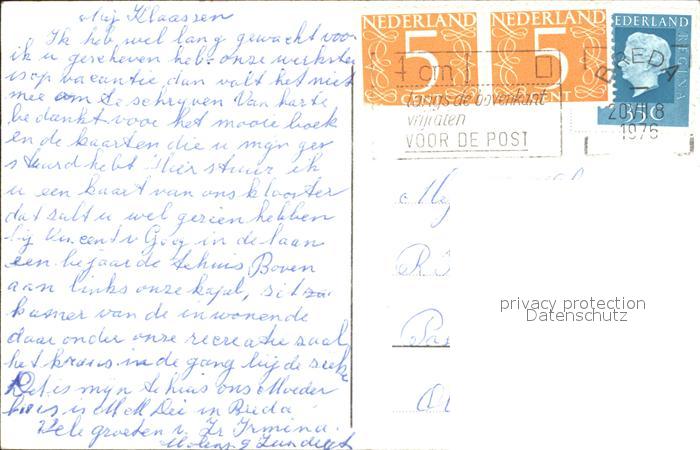 Mej Klaassen
Ik heb wel lang gewacht voor
ik u geschreven heb. onze werkster
is op vacantie dan valt het niet
mee om te schryven Van harte
bedankt voor het mooie boek
en de kaarten die u mijn ge
stuurd hebt Hier stuur ik
u een kaart van ons klooster
dat zult u wel gezien hebben
bij Vincent v Gog in de laan
een bejaarde tehuis Boven
aan links onze kapel, zit
kamer van de inwonende
daar onder onze recreatie zaal
het kruis in de gang bij de
Het is mijn tehuis ons Moeder
huis is M Dei in Breda
Vele groeten v. Zr Irmina
Molens
NEDERLAND
5
CENT
NEDERLAND
5
CENT
NEDERLAND
REGINA
35c
BREDA
20 VII 8
1976
4 cm
langs de bovenkant
vrijlaten
VOOR DE POST
Mej
privacy protection
Datenschutz